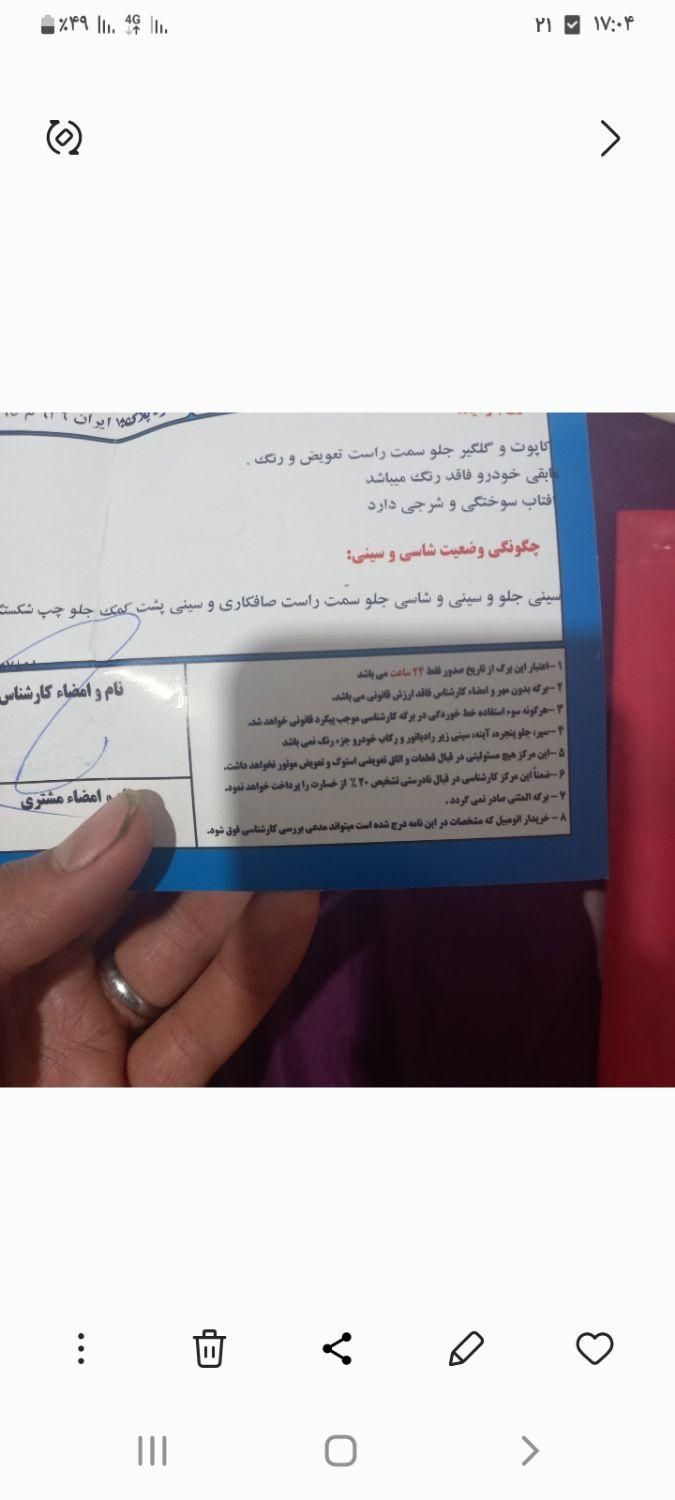 ۱۷:۰۴
۲۱
4G
٪۴۹
ایران
کاپوت و گلگیر جلو سمت راست تعویض و رنگ .
مابقی خودرو فاقد رنگ میباشد
افتاب سوختگی و شرجی دارد
چگونگی وضعیت شاسی و سینی:
سینی جلو و سینی و شاسی جلو سمت راست صافکاری و سینی پشت کمک جلو چپ
۱-اعتبار این برگ از تاریخ صدور فقط ۲۴ ساعت می باشد
۲-برگه بدون مهر و امضاء کارشناس فاقد ارزش قانونی می باشد.
۳-هرگونه سوء استفاده خط خوردگی در برگه کارشناسی موجب پیگرد قانونی خواهد شد.
۴-سپر، جلو پنجره، آینه، سینی زیر رادیاتور و رکاب خودرو جزء رنگ نمی باشد
۵-این مرکز هیچ مسئولیتی در قبال قطعات و اتاق تعویضی استوک و تعویض موتور نخواهد داشت.
۶-ضمناً این مرکز کارشناسی در قبال نادرستی تشخیص ۲۰٪ از خسارت را پرداخت خواهد نمود.
۷-برگه المثنی صادر نمی گردد .
۸-خریدار اتومبیل که مشخصات در این نامه درج شده است میتواند مدعی بررسی کارشناسی فوق شود.
نام و امضاء کارشناس
و امضاء مشتری